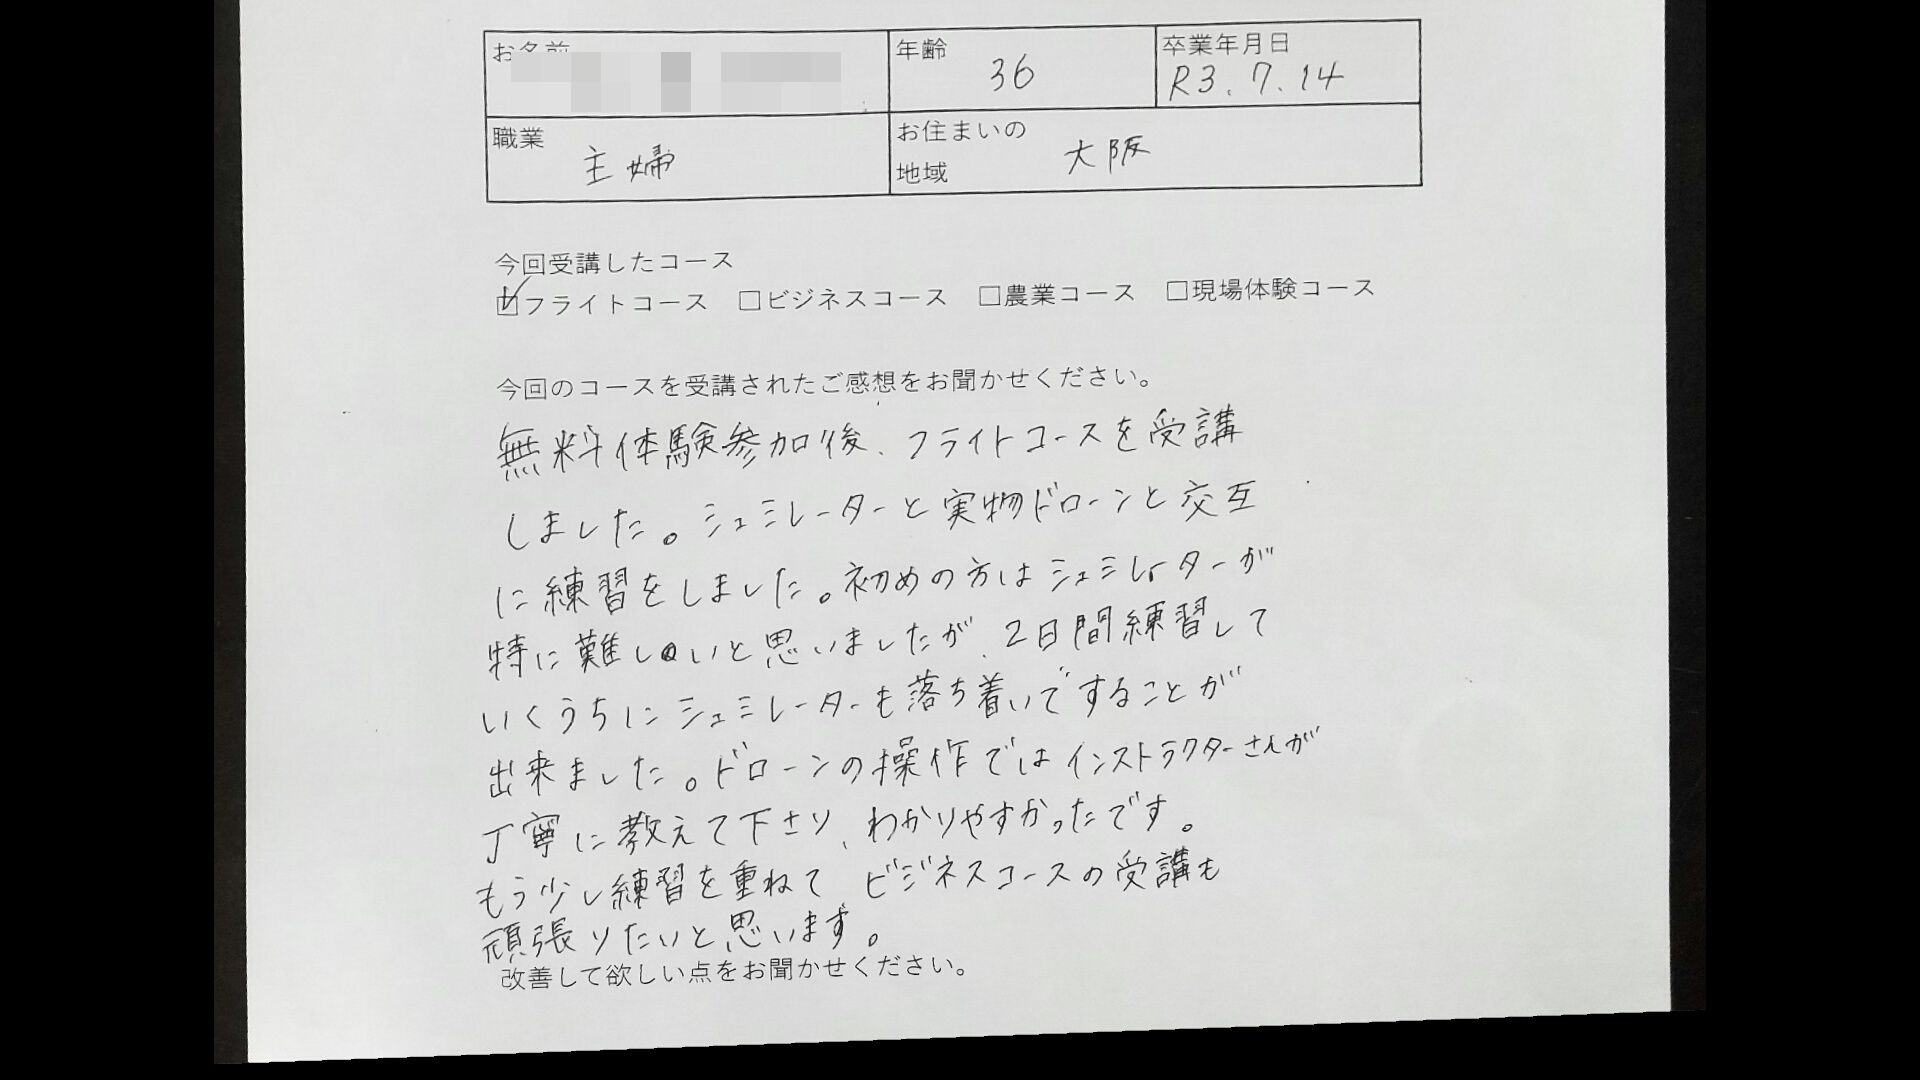 お名前
年齢
36
卒業年月日
R3.7.14
職業
主婦
お住まいの
地域
大阪
今回受講したコース
☑フライトコース □ビジネスコース □農業コース □現場体験コース
今回のコースを受講されたご感想をお聞かせください。
無料体験参加後、フライトコースを受講
しました。シュミレーターと実物ドローンと交互
に練習をしました。初めの方はシュミレーターが
特に難しいと思いましたが、2日間練習して
いくうちにシュミレーターも落ち着いてすることが
出来ました。ドローンの操作ではインストラクターさんが
丁寧に教えて下さり、わかりやすかったです。
もう少し練習を重ねて ビジネスコースの受講も
頑張りたいと思います。
改善して欲しい点をお聞かせください。